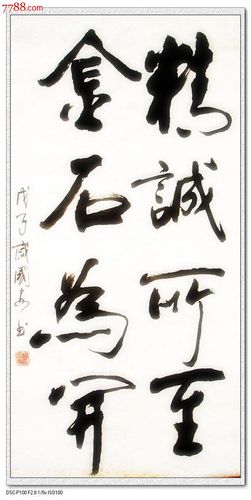 7788.com
精誠所至
金石為開
戊子歲國安書
DSC P100 F2.8 1/6s ISO100